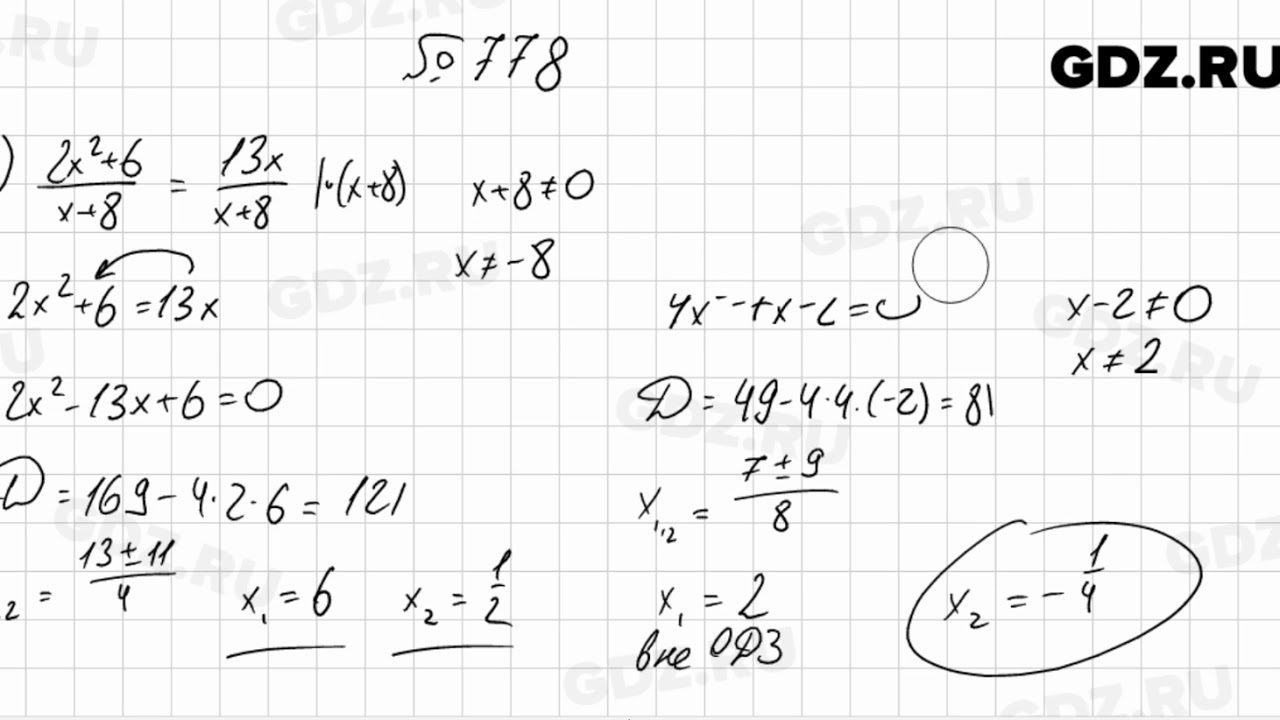 № 778
GDZ.RU
) (2x²+6)/(x+8) = 13x/(x+8) |·(x+8) x+8≠0
x≠-8
2x²+6=13x
2x²-13x+6=0
D=169-4·2·6=121
2 = (13±11)/4 x₁=6 x₂=1/2
x-2≠0
x≠2
D=49-4·4·(-2)=81
x₁,₂ = (7±9)/8
x₁=2
вне ОДЗ
x₂=-1/4